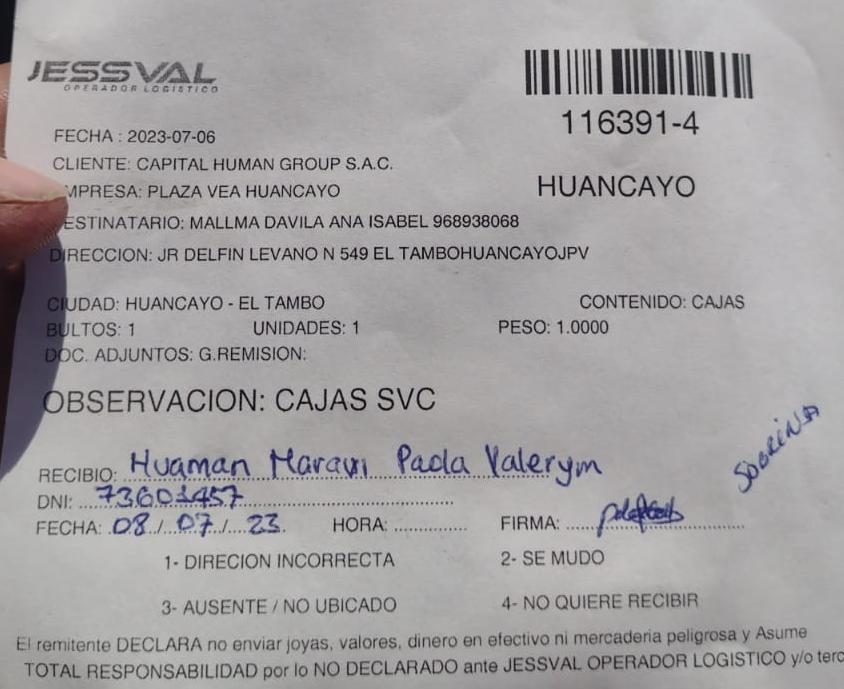 JESSVAL
OPERADOR LOGISTICO
116391-4
HUANCAYO
FECHA : 2023-07-06
CLIENTE: CAPITAL HUMAN GROUP S.A.C.
MPRESA: PLAZA VEA HUANCAYO
ESTINATARIO: MALLMA DAVILA ANA ISABEL 968938068
DIRECCION: JR DELFIN LEVANO N 549 EL TAMBOHUANCAYOJPV
CIUDAD: HUANCAYO - EL TAMBO CONTENIDO: CAJAS
BULTOS: 1 UNIDADES: 1 PESO: 1.0000
DOC. ADJUNTOS: G.REMISION:
OBSERVACION: CAJAS SVC
SOBRINA
RECIBIO: Huaman Maravi Paola Valerym
DNI: 73601457
FECHA: 08/07/23 HORA: FIRMA:
1- DIRECION INCORRECTA 2- SE MUDO
3- AUSENTE / NO UBICADO 4- NO QUIERE RECIBIR
El remitente DECLARA no enviar joyas, valores, dinero en efectivo ni mercaderia peligrosa y Asume
TOTAL RESPONSABILIDAD por lo NO DECLARADO ante JESSVAL OPERADOR LOGISTICO y/o terc